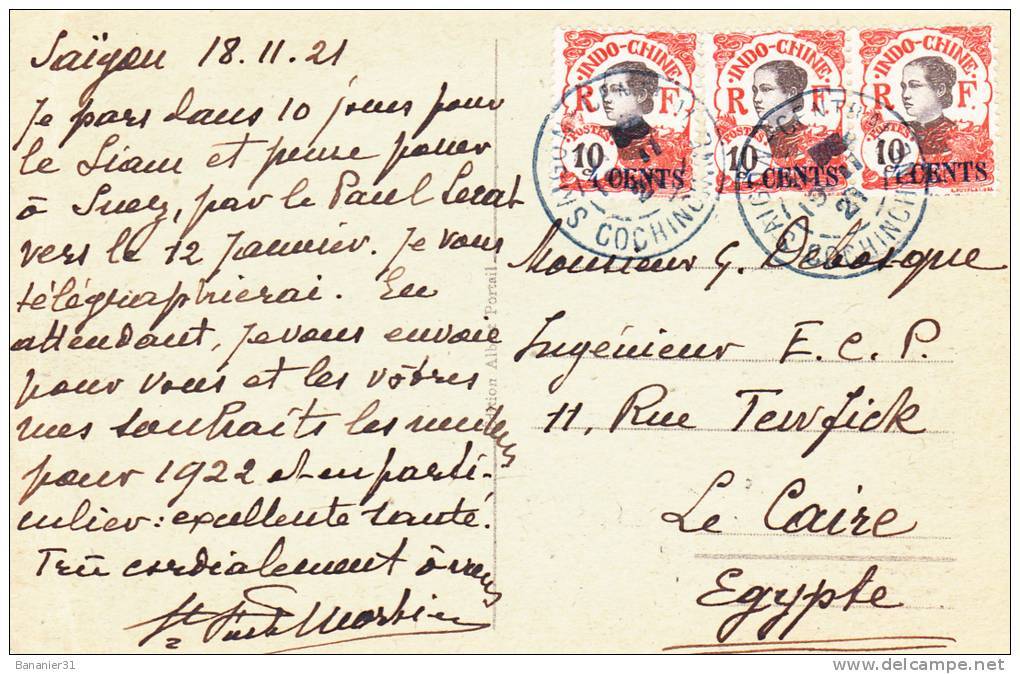 Saïgon 18.11.21
Je pars dans 10 jours pour
le Siam et pense passer
à Suez, par le Paul Lecat
vers le 12 Janvier. Je vous
télégraphierai. En
attendant, je vous envoie
pour vous et les vôtres
mes souhaits les meilleurs
pour 1922 et en parti-
culier: excellente santé.
Très cordialement à vous
INDO-CHINE
R F
POSTES
10
4 CENTS
INDO-CHINE
R F
POSTES
10
4 CENTS
INDO-CHINE
R F
POSTES
10
4 CENTS
SAIGON
COCHINCHINE
SAIGON
COCHINCHINE
Monsieur G.
Ingénieur E. C. P.
11, Rue Tewfick
Le Caire
Egypte
Portail
Bananier31
delcampe.net